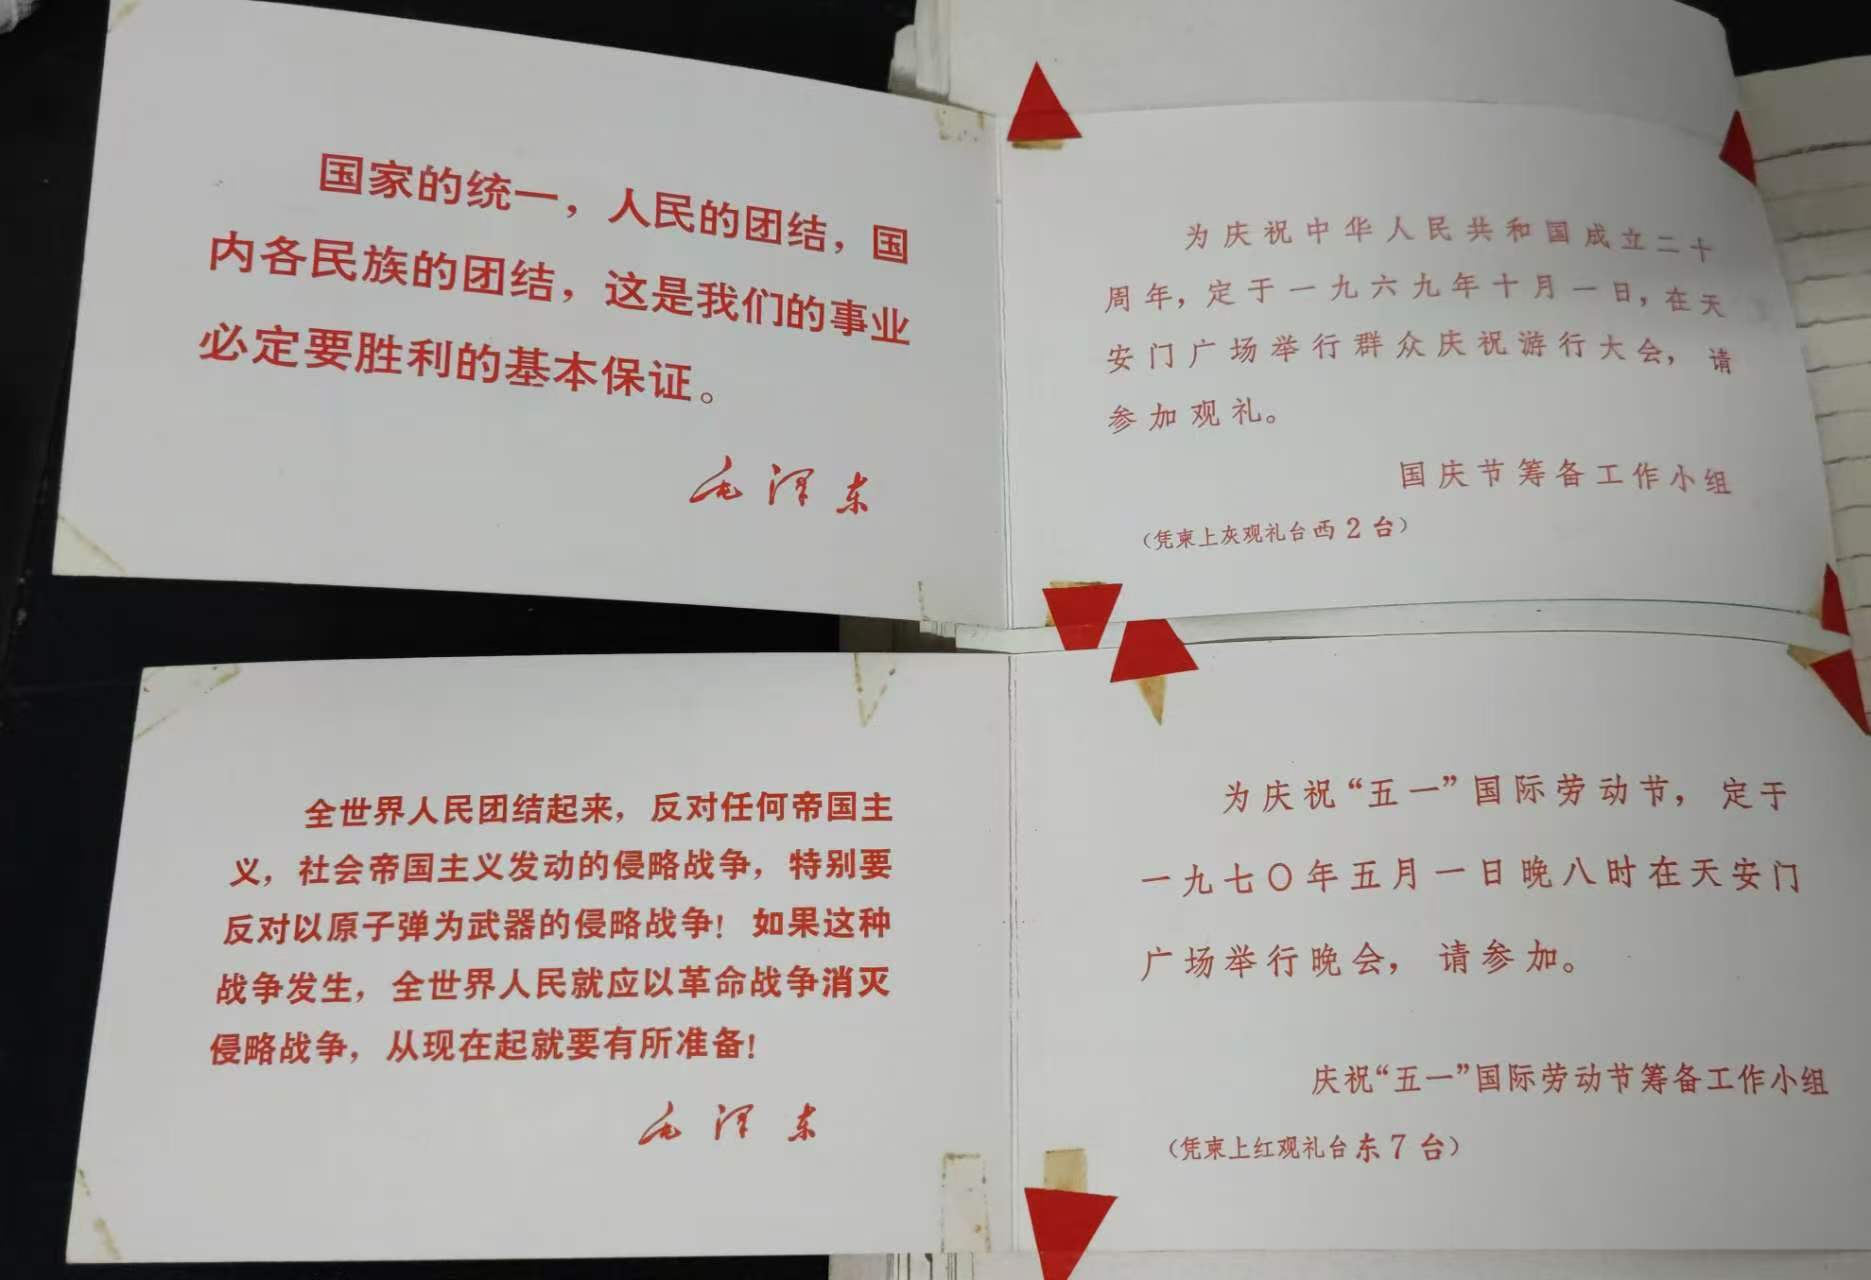 国家的统一，人民的团结，国
内各民族的团结，这是我们的事业
必定要胜利的基本保证。
毛泽东
为庆祝中华人民共和国成立二十
周年，定于一九六九年十月一日，在天
安门广场举行群众庆祝游行大会，请
参加观礼。
国庆节筹备工作小组
（凭柬上灰观礼台西2台）
全世界人民团结起来，反对任何帝国主
义，社会帝国主义发动的侵略战争，特别要
反对以原子弹为武器的侵略战争！如果这种
战争发生，全世界人民就应以革命战争消灭
侵略战争，从现在起就要有所准备！
毛泽东
为庆祝“五一”国际劳动节，定于
一九七〇年五月一日晚八时在天安门
广场举行晚会，请参加。
庆祝“五一”国际劳动节筹备工作小组
（凭柬上红观礼台东7台）